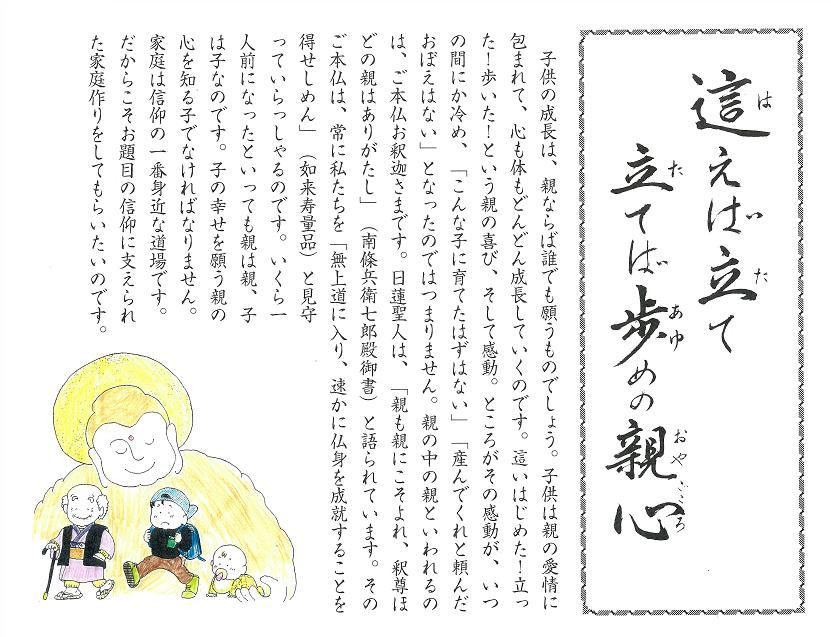 這えば立て
立てば歩めの親心
子供の成長は、親ならば誰でも願うものでしょう。子供は親の愛情に
包まれて、心も体もどんどん成長していくのです。這いはじめた！立っ
た！歩いた！という親の喜び、そして感動。ところがその感動が、いつ
の間にか冷め、「こんな子に育てたはずはない」「産んでくれと頼んだ
おぼえはない」となったのではつまりません。親の中の親といわれるの
は、ご本仏お釈迦さまです。日蓮聖人は、「親も親にこそよれ、釈尊ほ
どの親はありがたし」（南條兵衛七郎殿御書）と語られています。その
ご本仏は、常に私たちを「無上道に入り、速かに仏身を成就することを
得せしめん」（如来寿量品）と見守
っていらっしゃるのです。いくら一
人前になったといっても親は親、子
は子なのです。子の幸せを願う親の
心を知る子でなければなりません。
家庭は信仰の一番身近な道場です。
だからこそお題目の信仰に支えられ
た家庭作りをしてもらいたいのです。